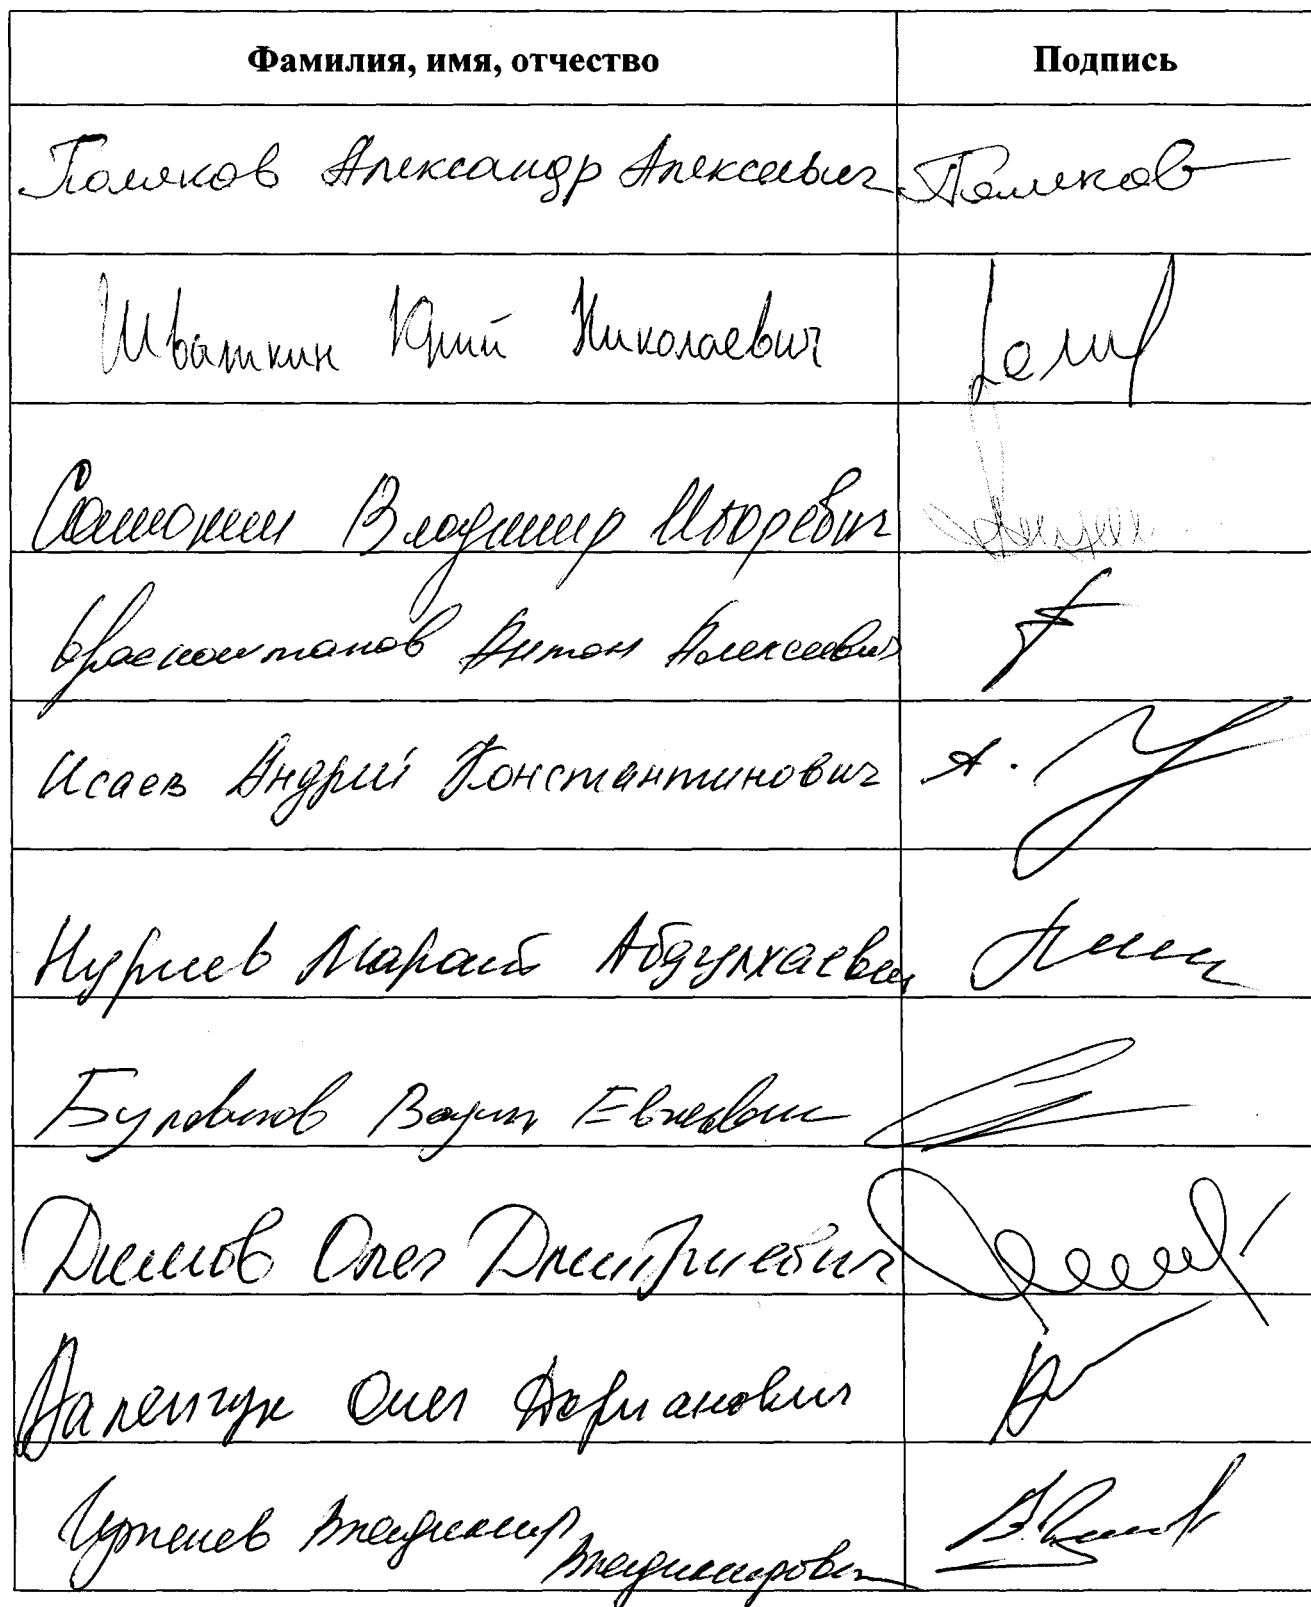 Фамилия, имя, отчество Подпись
Поляков Александр Алексеевич Поляков
Шваткин Юрий Николаевич
Самохин Владимир Игоревич
Антон Алексеевич
Исаев Андрей Константинович
Нуриев Марат Абдулхаевич
Вадим Евгеньевич
Димов Олег Дмитриевич
Олег Адрианович
Владимир
Владимирович